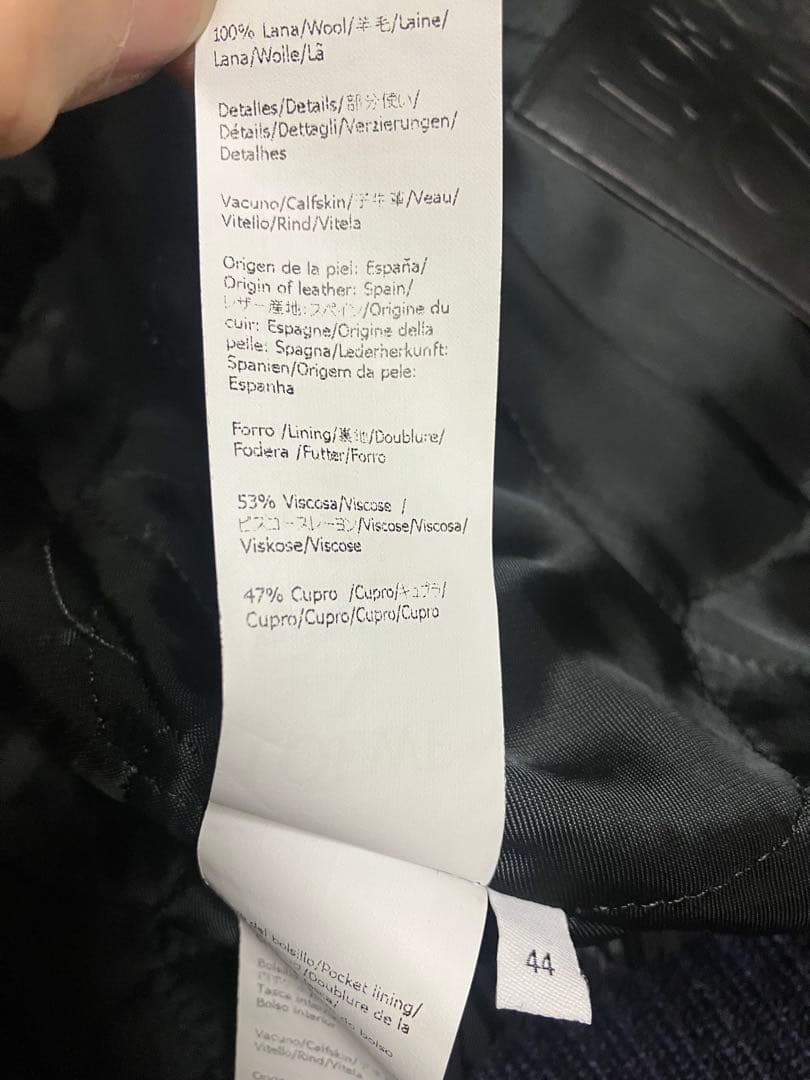 100% Lana/Wool/羊毛/Laine/
Lana/Wolle/Lã
Detalles/Details/部分使い/
Détails/Dettagli/Verzierungen/
Detalhes
Vacuno/Calfskin/子牛革/Veau/
Vitello/Rind/Vitela
Origen de la piel: España/
Origin of leather: Spain/
レザー産地:スペイン/Origine du
cuir: Espagne/Origine della
pelle: Spagna/Lederherkunft:
Spanien/Origem da pele:
Espanha
Forro /Lining/裏地/Doublure/
Fodera /Futter/Forro
53% Viscosa/Viscose /
ビスコースレーヨン/Viscose/Viscosa/
Viskose/Viscose
47% Cupro /Cupro/キュプラ/
Cupro/Cupro/Cupro/Cupro
44
del bolsillo/Pocket lining/
/Doublure de la
Tasca
Bolso interior
bolso
Vacuno/Calfskin/
Vitello/Rind/Vitela